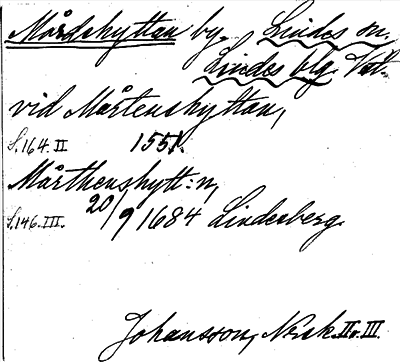 Mårdshyttan by. Lindes sn.
Lindes blg. Vstm.
vid Mårtenshyttan,
S. 164. II 1551.
Mårthenshytt:n,
S. 146. III. 20/9 1684 Lindesberg.
Johansson, Norask. II o. III.